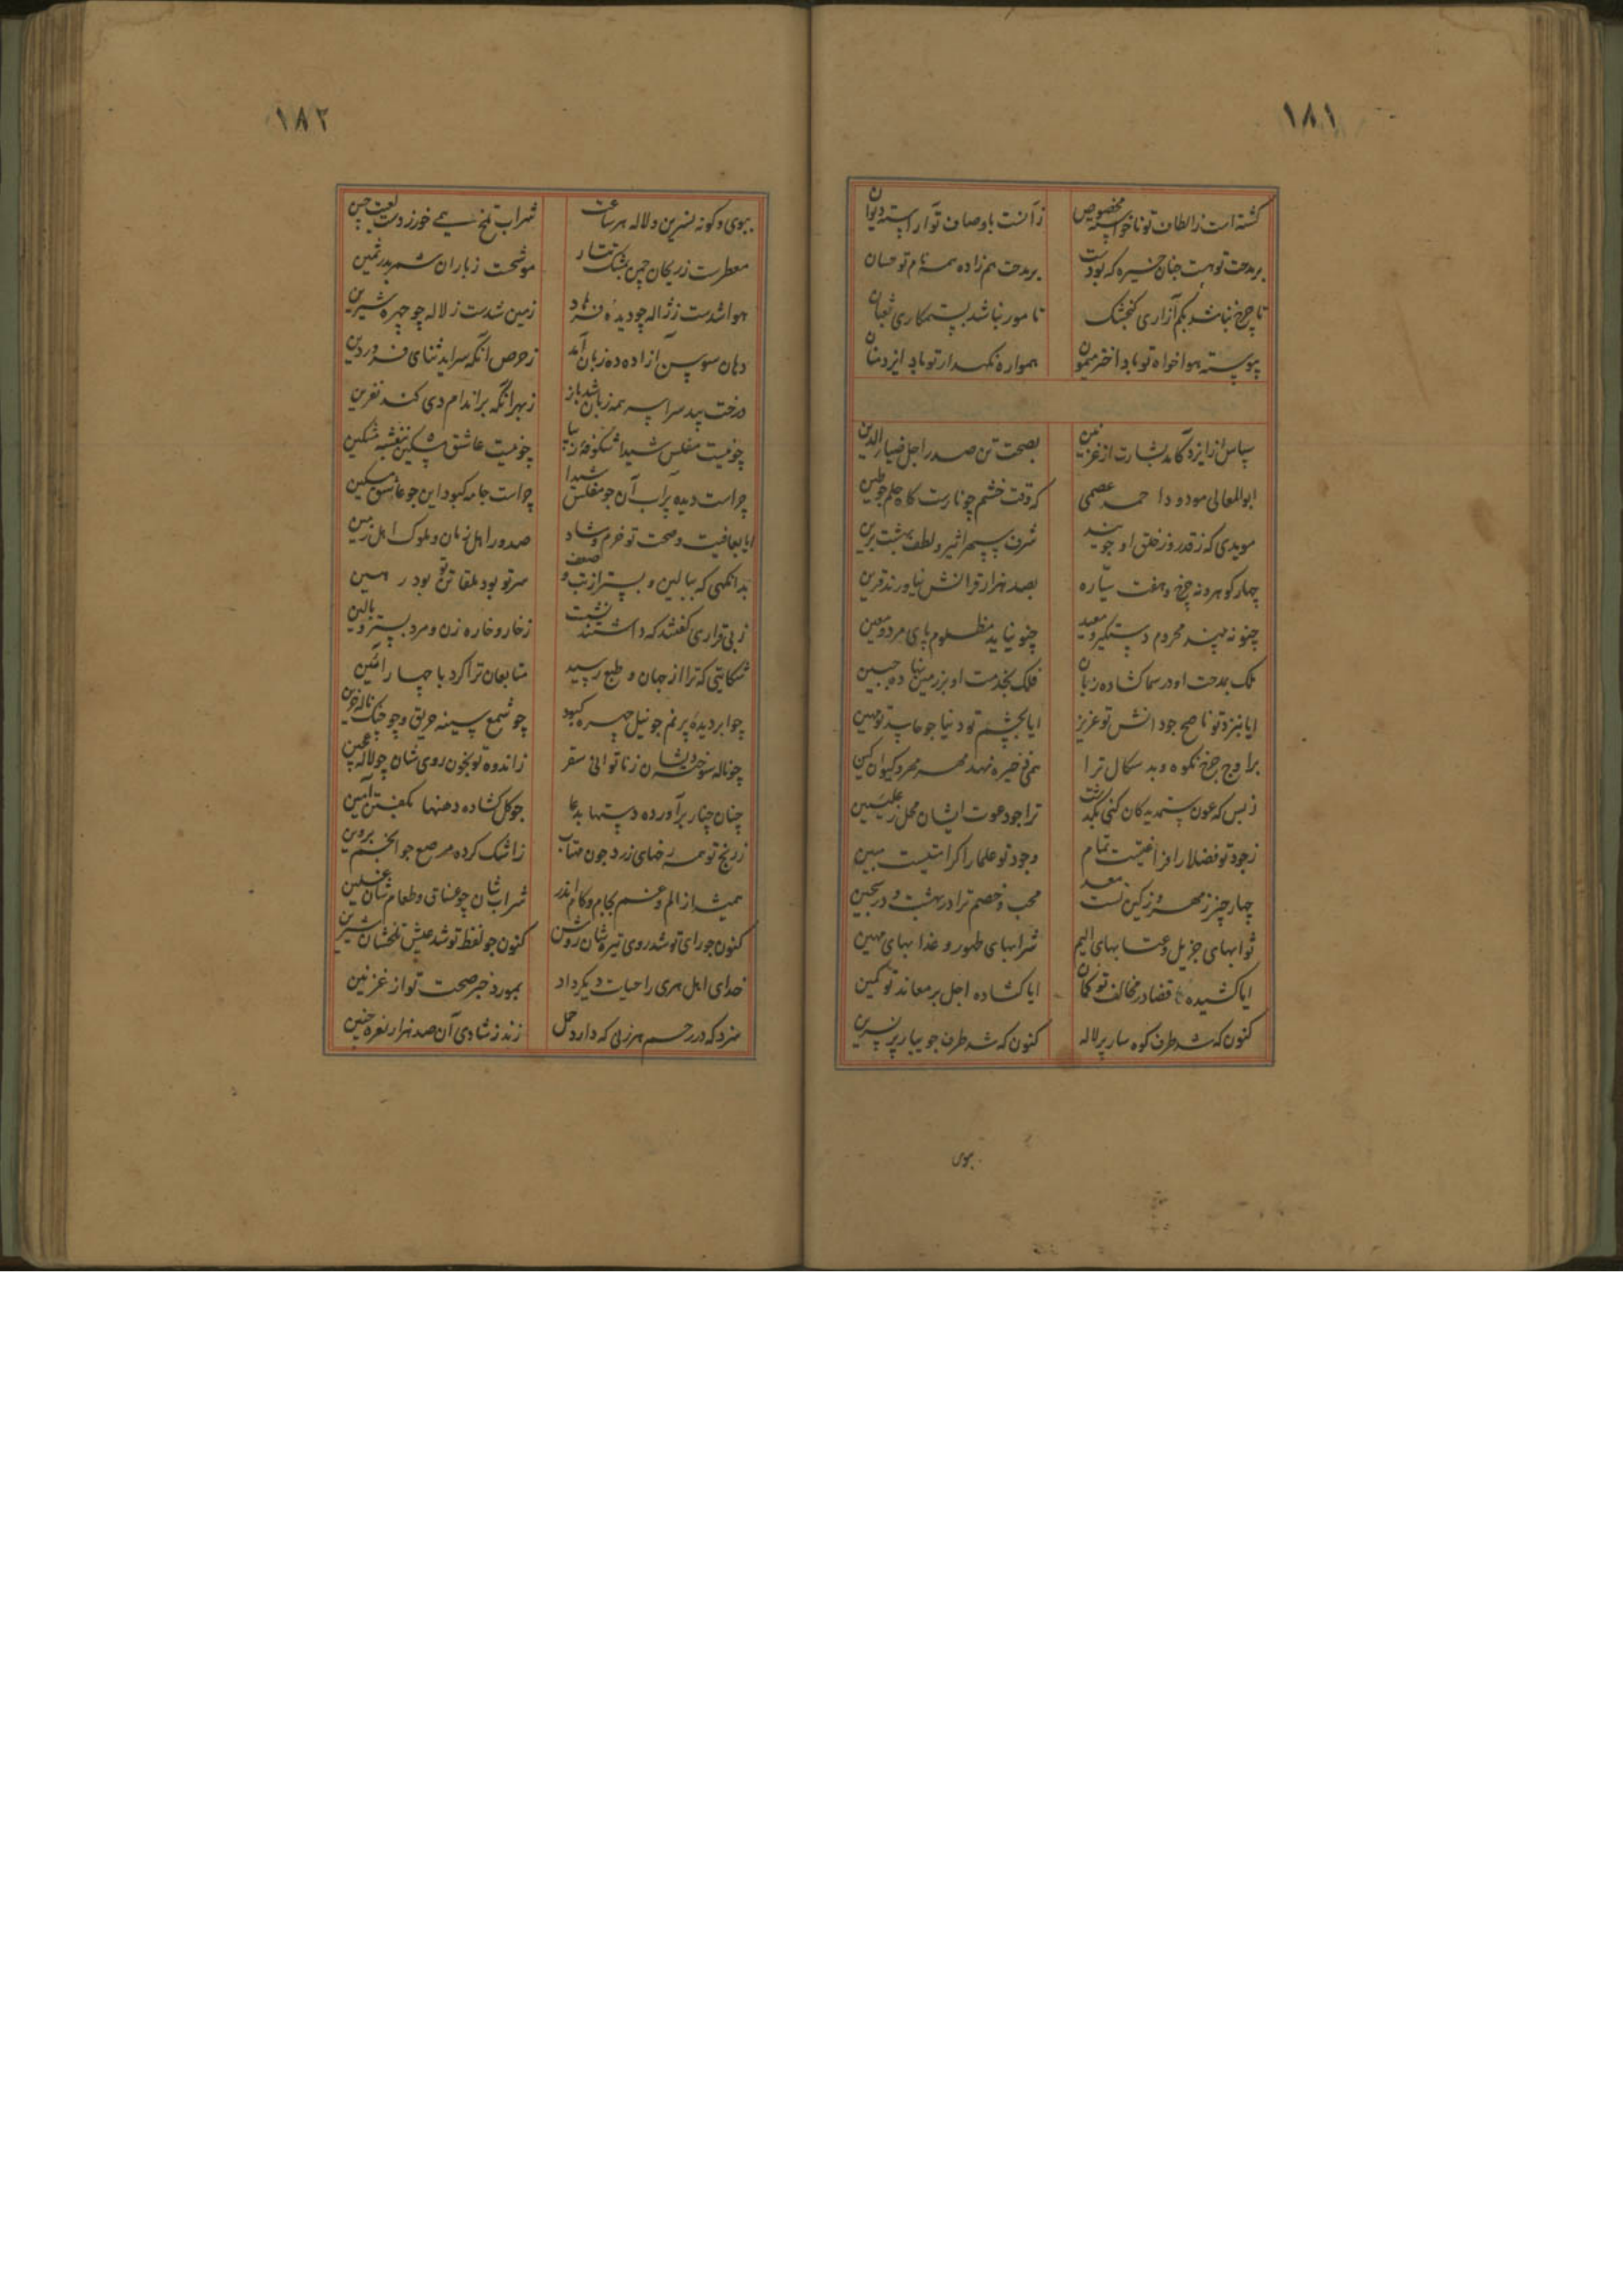 ۱۸۱
گشته است ز الطاف تو ناخواسته مخصوص
زآنست باوصاف تو آراسته دیوان
بر مدحت تو هست جنان خیره که بودست
بر مدحت هم زاده همنام تو حسان
تا چرخ نباشد بکم آزاری کنجشک
تا مور نباشد بستمکاری ثعبان
پیوسته هواخواه تو باد اختر میمون
همواره نکهدار تو باد ایزد منان
سپاس از ایزد کآمد بشارت از غزنین
بصحت تن صدر اجل ضیاء الدین
ابوالمعالی مودود احمد عصمی
که وقت خشم چو نارست کاه حلم چو طین
مویدی که ز قدر و ز خلق او جویند
شرف سپهر اثیر و لطف بهشت برین
چهار کوهر و نه چرخ و هفت سیاره
بصد هزار قرانش نیاورند قرین
چنو نه بیند محروم دستکیر و معید
چنو نیابد مظلوم پای مرد و معین
ملک بمدحت او در سما کشاده زبان
فلک بخدمت او بر زمین نهاده جبین
ایا بنزد تو ناصح جو دانش تو عزیز
ایا بچشم تو دنیا جو حاسد تو مهین
بر اوج چرخ نکوه و بد سکال ترا
همی ذخیره نهد مهر مهر و کیوان کین
ز بس که عون ستمدیدکان کنی بکذشت
ترا جو دعوت ایشان محل ز علیین
ز جود تو فضلا را فراغتیست تمام
وجود تو علما را کرامتیست مبین
چهار چیز ز مهر و ز کین تست معد
محب و خصم ترا در بهشت و در سجین
ثوابهای جزیل و عتابهای الیم
شرابهای طهور و غذابهای مهین
ایا کشیده قضا در مخالف تو کمان
ایا کشاده اجل بر معاند تو کمین
کنون که شد طرف کوهسار پر لاله
کنون که شد طرف جویبار پر نسرین
بوی
۱۸۲
ببوی و کونه نسرین و لاله هر ساعت
شراب تلخ همی خور ز دست لعبت چین
معطرست ز ریحان چمن بمشک تتار
موشحت ز باران شمر بدر ثمین
هوا شدست ز ژاله چو دیده فرهاد
زمین شدست ز لاله چو چهره شیرین
دهان سوسن آزاده ده زبان آمد
ز حرص انکه سراید ثنای فروردین
درخت بید سراسر همه زبان شد باز
ز بهر انکه بر اندام دی کند نفرین
چو نیست مفلس شیدا شکوفه زیبا
چو نیست عاشق مسکین بنفشه مشکین
چراست دیده پر آب آن جو مفلس شیدا
چراست جامه کبود این جو عاشق مسکین
ایا بعافیت و صحت تو خرم و شاد
صدور اهل زمان و ملوک اهل زمین
بدانکهی که ببالین و بستر از تب و ضعف
سر تو بود ملقا تن تو بود رهین
ز بی قراری کفتند که داشتند نشست
ز خار و خاره زن و مرد بستر و بالین
شکایتی که ترا از جهان و طبع رسید
متابعان ترا کرد با چهار آئین
چو ابر دیده پر نم جو نیل چهره کبود
چو شمع سینه حریق و چو چنک ناله حزین
چو ناله سوخته شان ز ناتوانی سقر
ز اندوه تو بخون روی شان چو لاله عجین
چنان چنار برآورده دستها بدعا
جو کل کشاده دهنها بکفتن آمین
ز رنج تو همه رخهای زرد جون مهتاب
ز اشک کرده مرصع جو انجم پروین
همیشه از الم و غم بجام و کام اندر
شراب شان چو غساق و طعام شان غسلین
کنون جو رای تو شد روی تیره شان روشن
کنون جو لفظ تو شد عیش تلخشان شیرین
خدای اهل هری را حیات دیکر داد
بمورد خبر صحت تو از غزنین
سزد که در رحم هر زنی که دارد حمل
زند ز شادی آن صد هزار نعره جنین